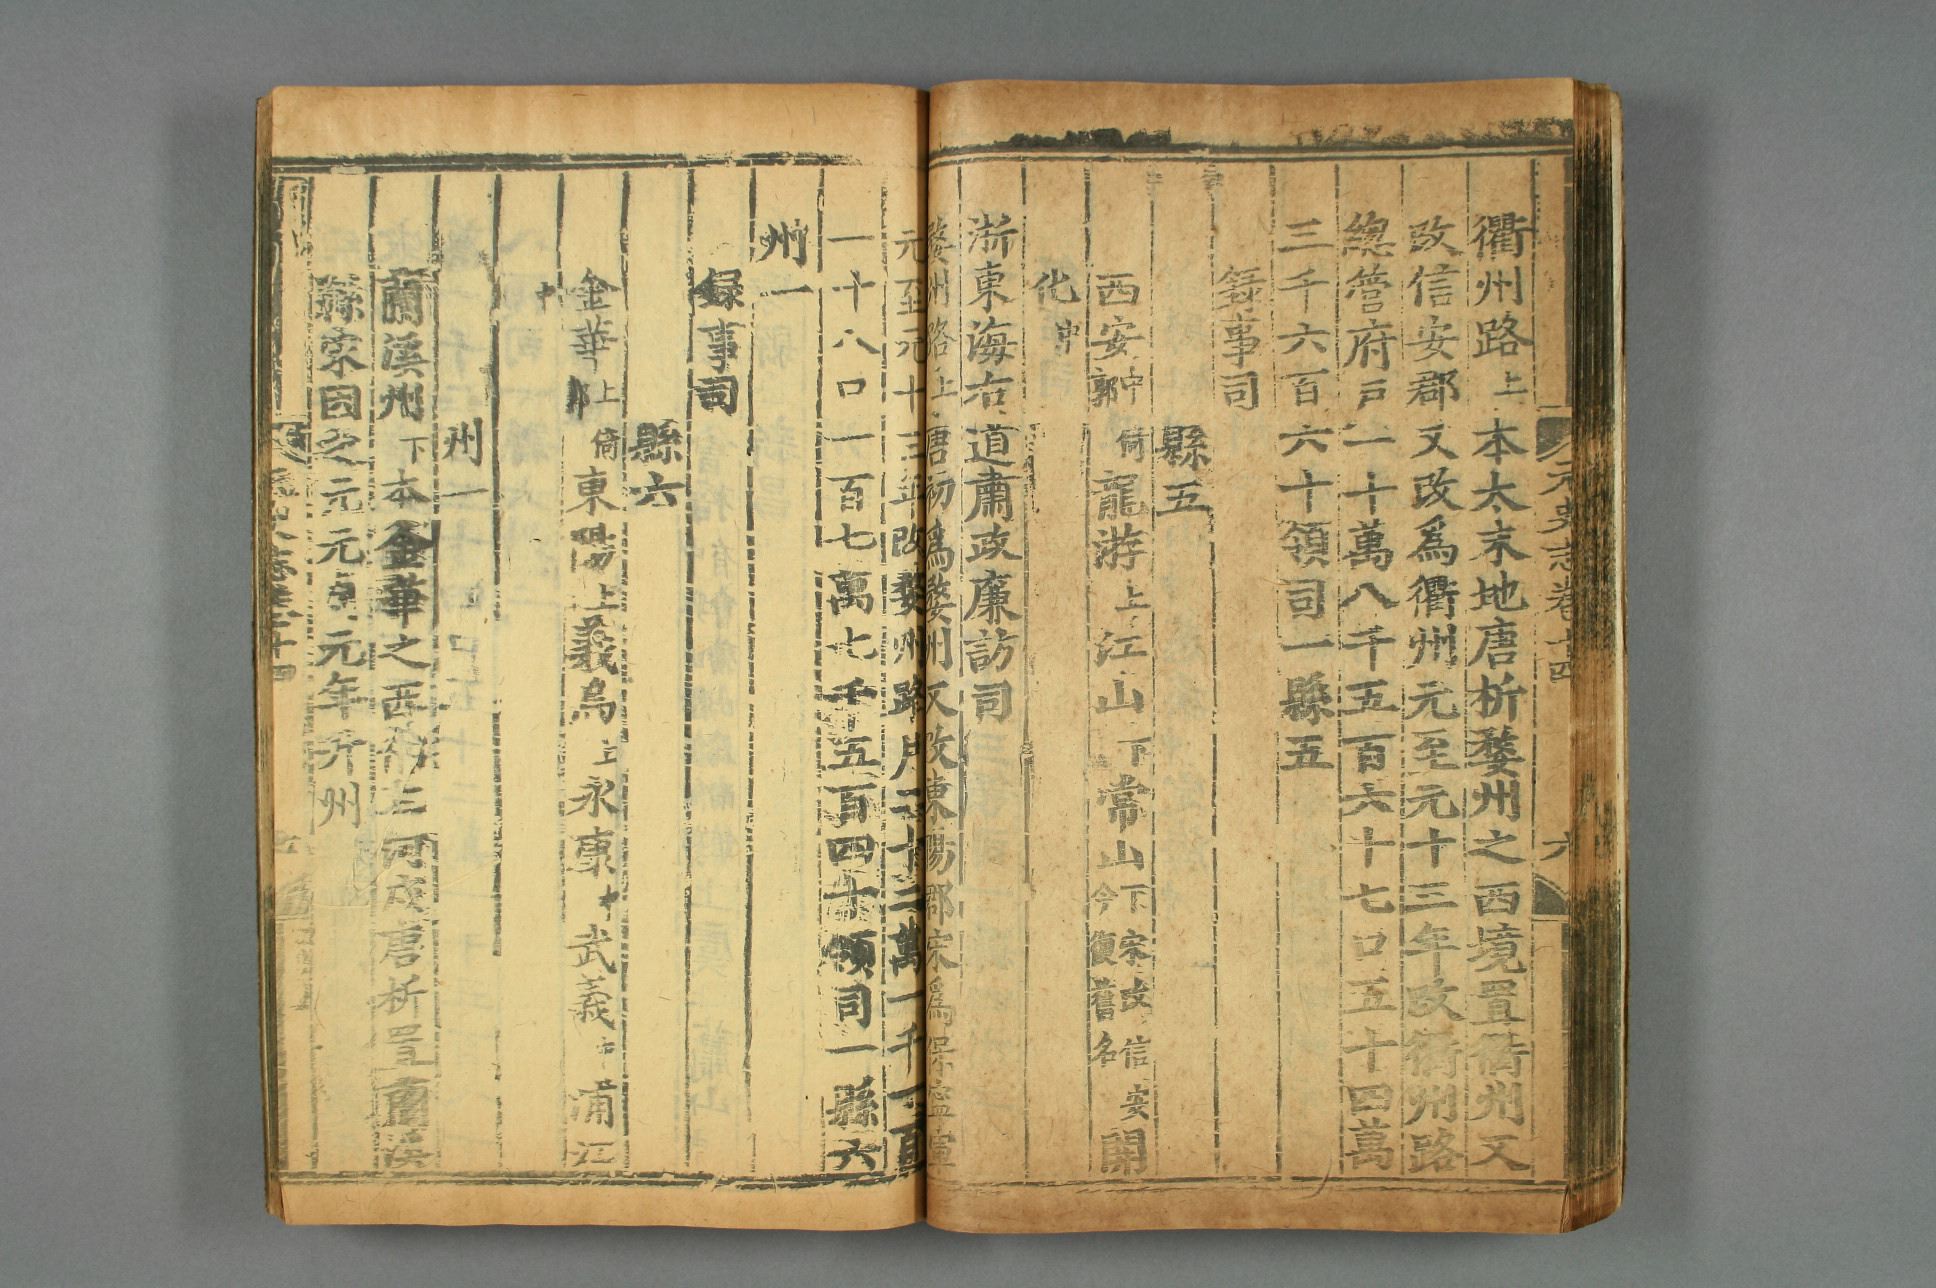 元史志卷十四
六
衢州路上本太末地唐析婺州之西境置衢州又
改信安郡又改爲衢州元至元十三年改衢州路
總管府戶一十萬八千五百六十七口五十四萬
三千六百六十領司一縣五
錄事司
縣五
西安中倚郭龍游上江山下常山下宋改信安今復舊名開
化中
浙東海右道肅政廉訪司
婺州路上唐初爲婺州又改東陽郡宋爲保寧軍
元至元十三年改婺州路戶二十二萬一千一百
一十八口一百七萬七千五百四十領司一縣六
州一
錄事司
縣六
金華上倚郭東陽上義烏上永康中武義中浦江
中
州一
蘭溪州下本金華之西部三河戍唐析置蘭溪
縣宋因之元元貞元年升州